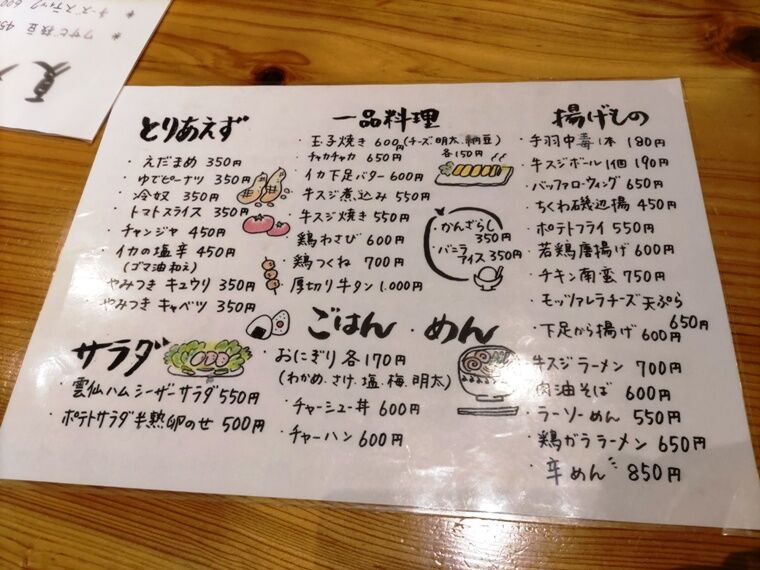 * チーズスティック 600
* ワサビ枝豆 450
夏
とりあえず
・えだまめ 350円
・ゆでピーナツ 350円
・冷奴 350円
・トマトスライス 350円
・チャンジャ 450円
・イカの塩辛 450円
(ゴマ油和え)
・やみつきキュウリ 350円
・やみつきキャベツ 350円
サラダ
・雲仙ハムシーザーサラダ 550円
・ポテトサラダ半熟卵のせ 500円
一品料理
・玉子焼き 600円(チーズ、明太、納豆)
各150円
・チャカチャカ 650円
・イカ下足バター 600円
・牛スジ煮込み 550円
・牛スジ焼き 550円
・鶏わさび 600円
・鶏つくね 700円
・厚切り牛タン 1,000円
・かんざらし
350円
・バニラアイス 350円
ごはん・めん
・おにぎり各170円
(わかめ、さけ、塩、梅、明太)
・チャーシュー丼 600円
・チャーハン 600円
揚げもの
・手羽中毒1本 180円
・牛スジボール1個 190円
・バッファローウィング 650円
・ちくわ磯辺揚 450円
・ポテトフライ 550円
・若鶏唐揚げ 600円
・チキン南蛮 750円
・モッツァレラチーズ天ぷら
650円
・下足から揚げ 600円
・牛スジラーメン 700円
・肉油そば 600円
・ラーソーめん 550円
・鶏ガララーメン 650円
・辛めん 850円